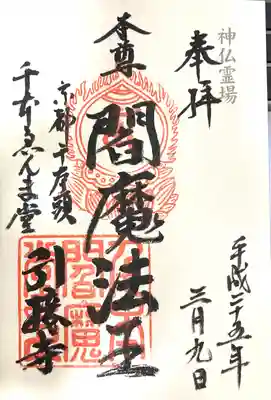 神仏霊場
奉拝
平成二十五年
三月九日
本尊
閻魔法王
京都十座頭
千本ゑんま堂
引接寺